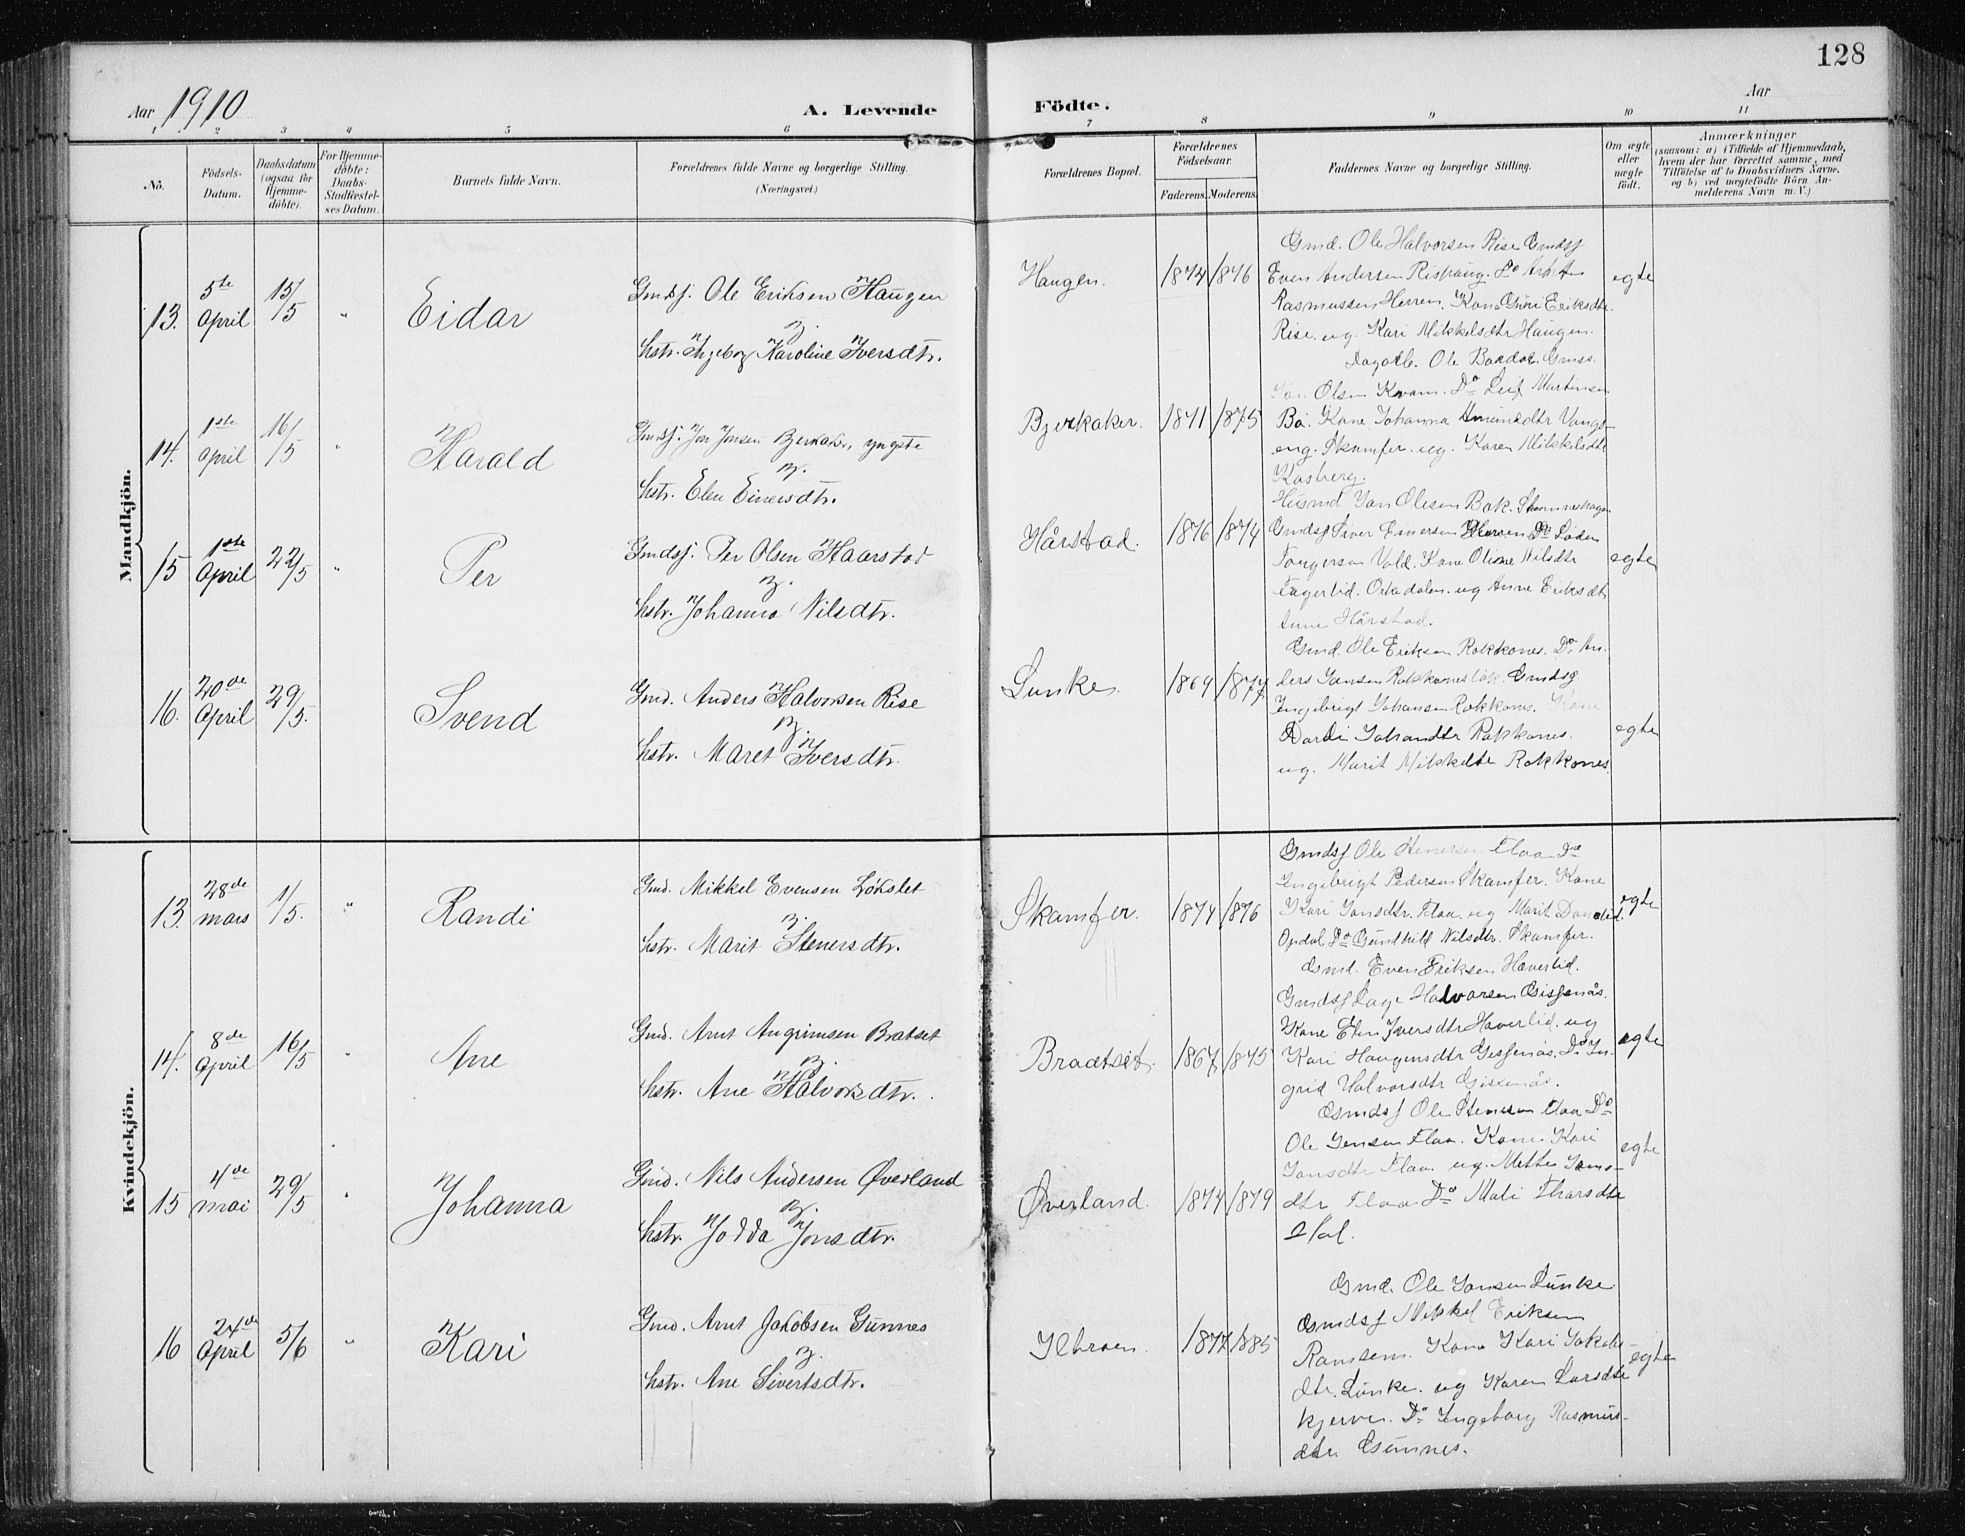 128
Aar 1910
A. Levende Födte.
Aar
1 2 3 4 5 6 7 8 9 10 11
No.
Födsels-Datum.
Daabsdatum (ogsaa for Hjemme-döbte).
For Hjemme-döbte: Daabs-Stadfæstel-ses Datum.
Barnets fulde Navn.
Forældrenes fulde Navne og borgerlige Stilling. (Næringsvei.)
Forældrenes Bopæl.
Forældrenes Födselsaar.
Faderens. Moderens.
Faddernes Navne og borgerlige Stilling.
Om ægte eller uægte födt.
Anmærkninger
(saasom: a) i Tilfælde af Hjemmedaab, hvem der har forrettet samme, med Tilföielse af to Daabsvidners Navne, og b) ved uægtefödte Börn An-melderens Navn m. V.)
Mandkjön.
13. 5te April 15/5 " Eidar
Gmdsj. Ole Eriksen Haugen
Hstr. Ingeborg Karoline Iversdtr.
Haugen. 1874 1876
Gmd. Ole Halvorsen Rise Gmdsj
Even Andersen Rishaug. Do
Rasmussen Herrem. Kone Guri Eriksdtr.
Rise. ug. Kari Mikkelsdtr Haugen.
egte
14. 1ste April 16/5 " Harald
Gmdsj. Jon Jonsen Bjerkaker, yngste
Hstr. Elen Einersdtr.
Bjerkaker. 1871 1875
Ole Bardos.
Olsen Kvam. Do Leif Martinsen
Bö. Kone Johanna Amundsdtr Vangs-
eng. Skamfer. ug. Karen Mikkelsdtr
Kasberg.
15 1ste April 22/5 " Per
Gmdsj. Per Olsen Haarstad
Hstr. Johanna Nilsdtr.
Hårstad. 1876 1874
Jon Olesen Bak.
Gmdsj Siver Einersen
Vold. Kone Oline Nilsdtr
Fagerlid. Orkedalen. ug Anne Eriksdtr
Hårstad.
egte
16. 20de April 29/5. Svend
Gmd. Anders Halvorsen Rise
Hstr. Maret Iversdtr.
Lunke. 1869 1877
Gmd. Ole Eriksen Rokkones. Do An-
ders Jansen Rokkones Gmdsj
Ingebrigt Johansen Rokkones. Kone
Dardi Johansdtr Rokkones.
ug. Marit Mikkelsdtr Rokkones
egte
Kvindekjön.
13. 28de mars 1/5. " Randi
Gmd. Mikkel Evensen Lökslet
Hstr. Marit Stenersdtr.
Skamfer. 1874 1876
Gmdsj Ole Stenersen Flaa Do
Ingebrigt Pedersen Skamfer. Kone
Kari Jonsdtr. Flaa. ug Marit
Opdal Do Gundhild Nilsdtr. Skamfer.
egte
14. 8de April 16/5 " Ane
Gmd. Arnt Angrimsen Bratset
Hstr. Ane Halvorsdtr.
Bradtset. 1867 1875
Gmd. Even Eriksen Haverlid.
Gmdsj Dage Halvorsen Gisnås.
Kone Elen Iversdtr Haverlid. ug
Kari Haugensdtr Gisnås. Do In-
grid Halvorsdtr Gisnås.
egte
15 4de mai 29/5 " Johanna
Gmd. Nils Andersen Øverland
Hstr. Jodda Jonsdtr.
Øverland. 1874 1879
Gmdsj Ole Stensen Flaa Do
Ole Jensen Flaa. Kone Kari
Jonsdtr Flaa. ug. Mette Jons-
dtr Flaa Do Mali Tharsdtr
Hol.
egte
16 24de April 5/6 " Kari
Gmd. Arnt Jakobsen Gunnes
Hstr. Ane Sivertsdtr.
Ilbroen. 1877 1885
Gmd. Ole Jonsen Lunke
Gmdsj Mikkel Eriksen
Ramsem. Kone Kari Jakobs-
dtr. Lunke. ug Karen Larsdtr
Kjerve. Do Ingeborg Rasmus-
dtr. Gunnes.
egte